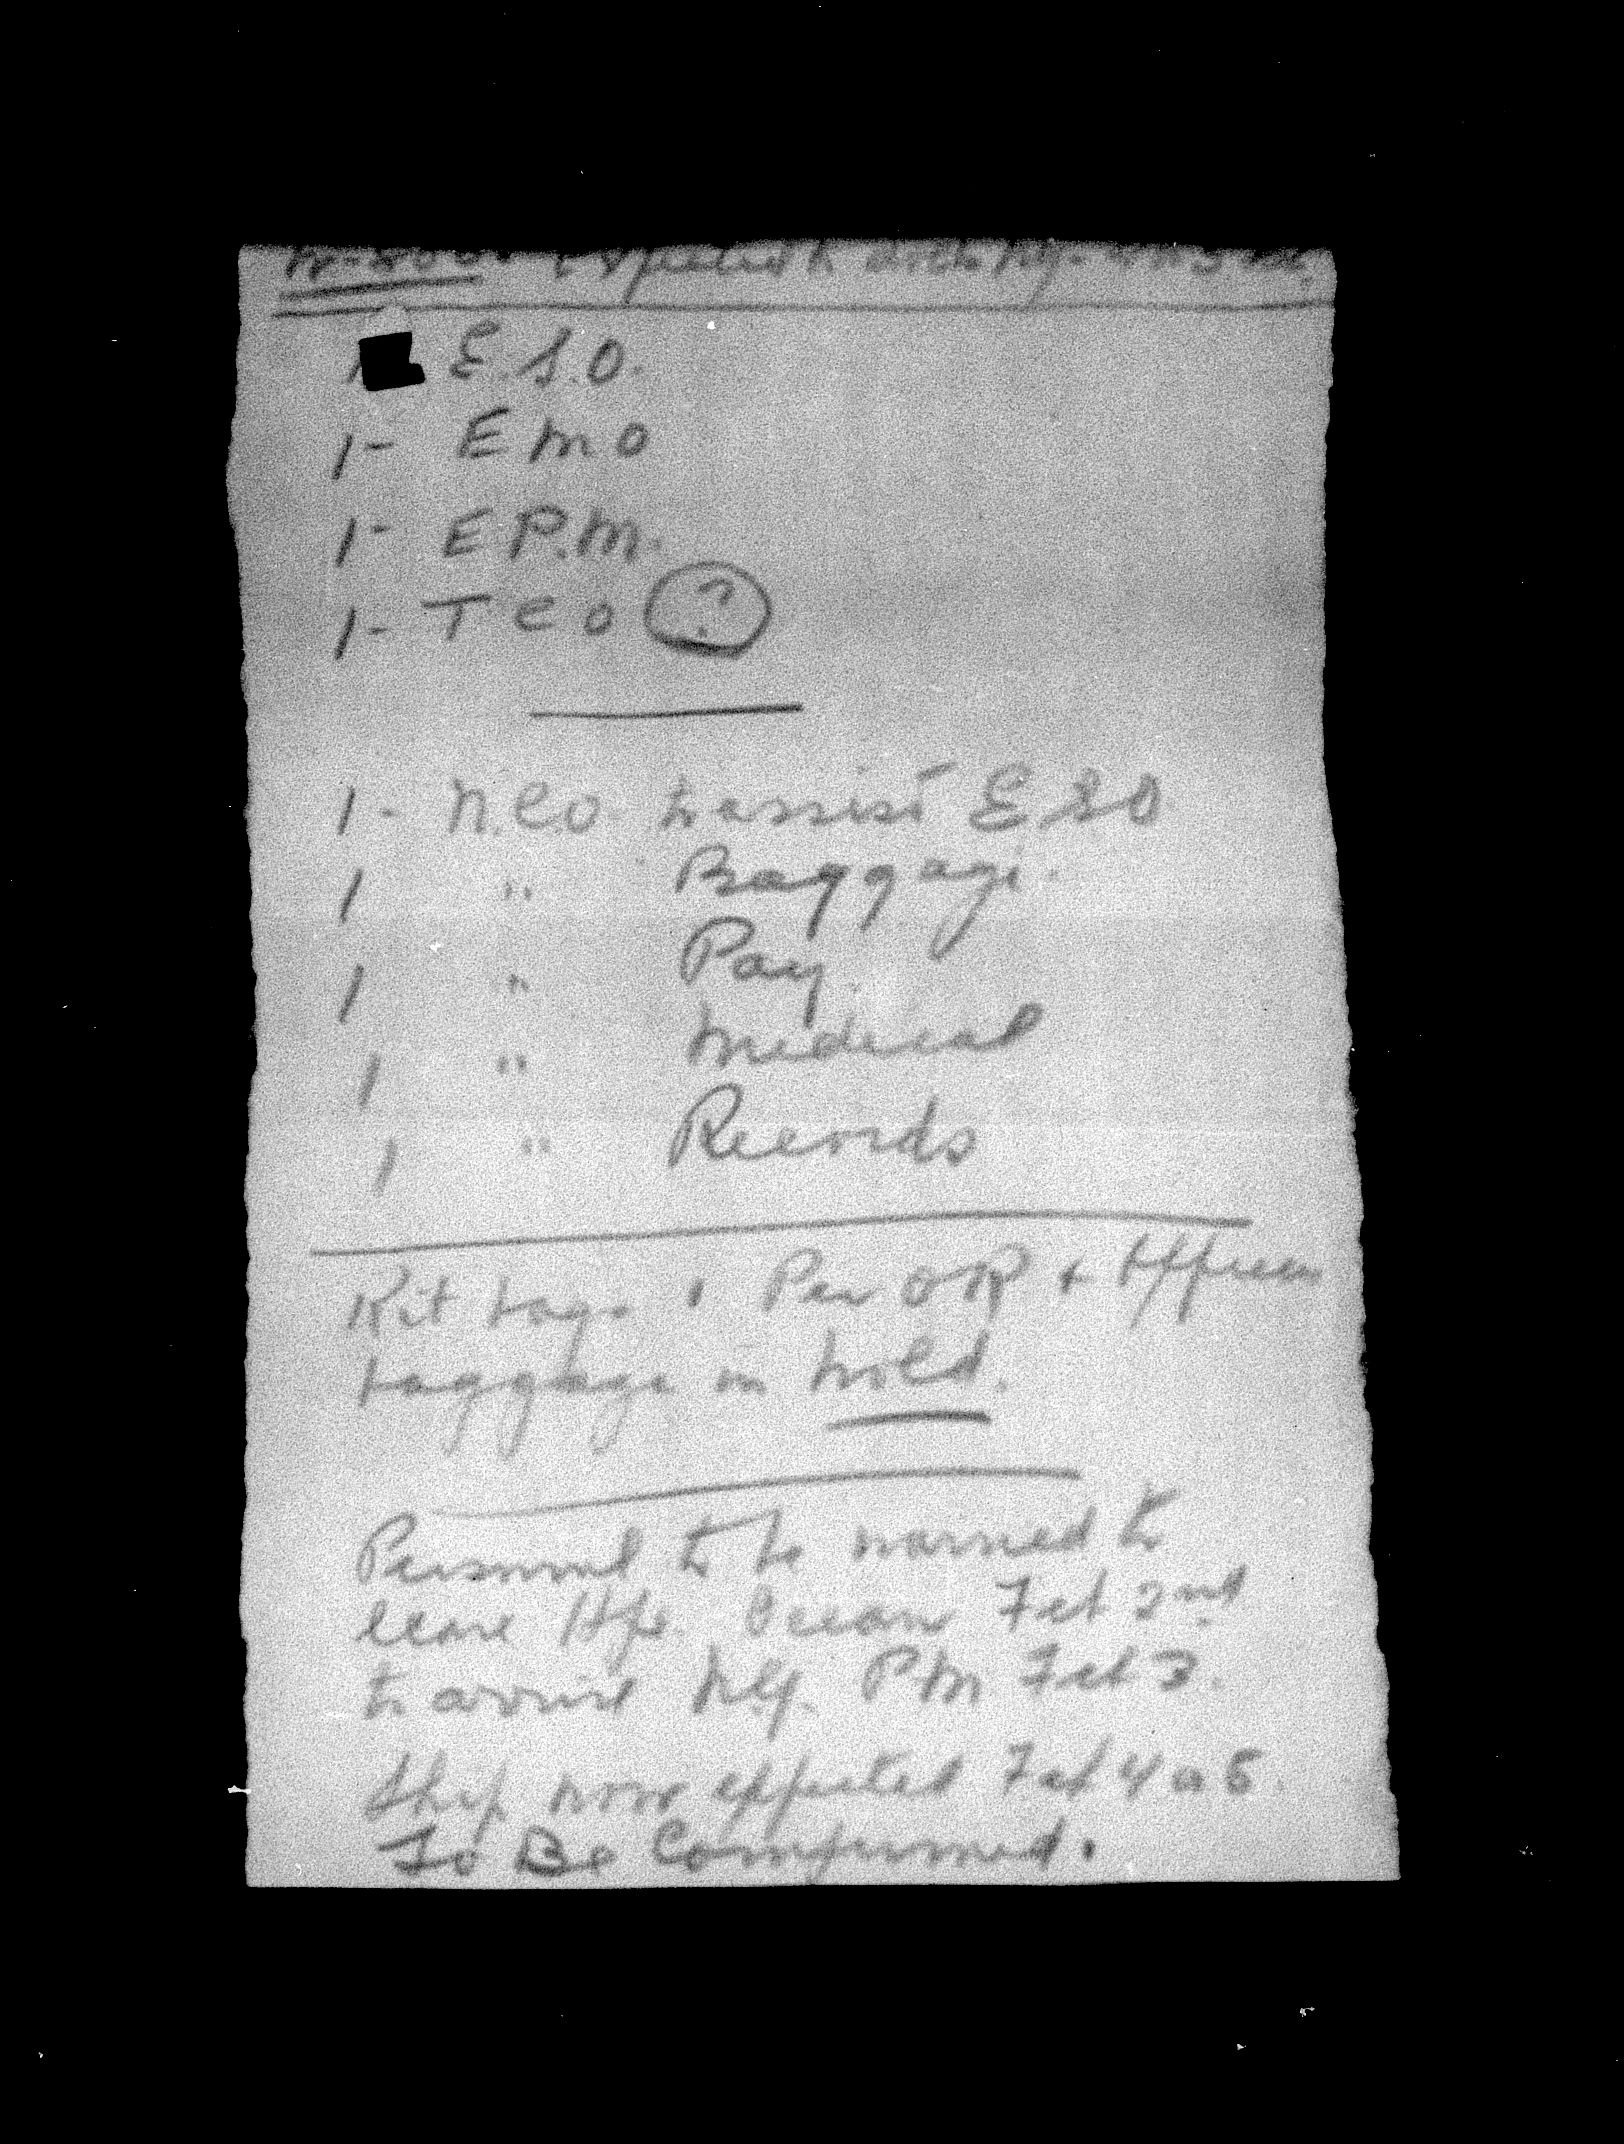 E.S.O.
1- E M O
1- E P.M.
1- T C O ?
1- N.C.O. to assist E S O
1 " Baggage.
1 " Pay.
1 " Medical
1 " Records
Kit bags 1 Per OR + Officers
baggage in hold.
Personnel to be warned to
leave Hfx. Ocean Feb 2nd
to arrive PM Feb 3.
Ship now expected Feb 4 or 5.
To Be Confirmed.